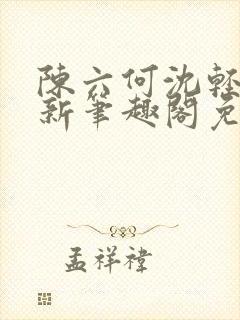 陳六何沈輕
新筆趣閣免
孟祥禕